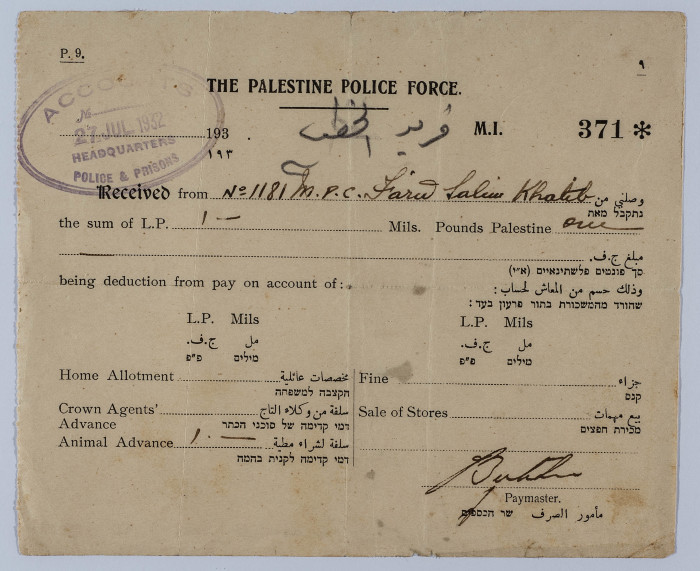 P. 9.
٩
THE PALESTINE POLICE FORCE.
ACCOUNTS
No
27 JUL. 1932
HEADQUARTERS
POLICE & PRISONS
193
١٩٣
فريد الخطيب
M.I.
371 *
Received from No 1181 M.P.C. Farid Salim Khatib وصلني من
נתקבל מאת
the sum of L.P. 1 — Mils. Pounds Palestine one
مبلغ ج.ف.
סך פונטים פלשתינאיים (א״י)
being deduction from pay on account of: وذلك حسم من المعاش لحساب:
שהורד מהמשכורת בתור פרעון בעד:
L.P. Mils L.P. Mils
مل ج.ف. مل ج.ف.
מילים פ״פ מילים פ״פ
Home Allotment مخصصات عائلية
הקצבה למשפחה
Fine جزاء
קנס
Crown Agents' سلفة من وكلاء التاج
Advance דמי קדימה של סוכני הכתר
Sale of Stores بيع مهمات
מכירת חפצים
Animal Advance 1 — سلفة لشراء مطية
דמי קדימה לקנית בהמה
Paymaster.
مأمور الصرف שר הכספים